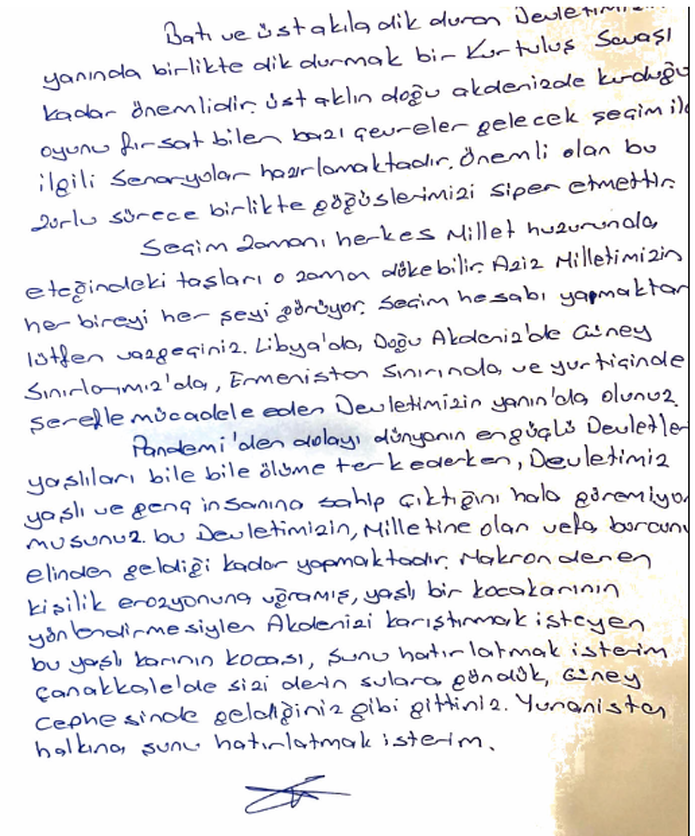 Batı ve üst akıla dik duran Devletimizin
yanında birlikte dik durmak bir Kurtuluş Savaşı
kadar önemlidir. üst aklın doğu akdenizde kurduğu
oyunu fırsat bilen bazı çevreler gelecek seçim ile
ilgili senaryolar hazırlamaktadır. Önemli olan bu
zorlu sürece birlikte göğüslerimizi siper etmettir.
Seçim zamanı herkes Millet huzurunda,
eteğindeki taşları o zaman dökebilir. Aziz Milletimizin
her bireyi her şeyi görüyor. Seçim hesabı yapmaktan
lütfen vazgeçiniz. Libya'da, Doğu Akdeniz'de Güney
Sınırlarımız'da, Ermenistan sınırında, ve yurtiçinde
şerefle mücadele eden Devletimizin yanın'da olunuz.
Pandemi'den dolayı dünyanın engüçlü Devletler
yaşlıları bile bile ölüme terkederken, Devletimiz
yaşlı ve genç insanına sahip çıktığını hala göremiyor
musunuz. bu Devletimizin, Milletine olan vefa borcunu
elinden geldiği kadar yapmaktadır. Makron denen
kişilik erozyonuna uğramış, yaşlı bir kocakarının
yönlendirmesiylen Akdenizi karıştırmak isteyen
bu yaşlı karının kocası, şunu hatırlatmak isterim
Çanakkale'de sizi derin sulara gömdük, Güney
Cephesinde geldiğiniz gibi gittiniz. Yunanistan
halkına, şunu hatırlatmak isterim.